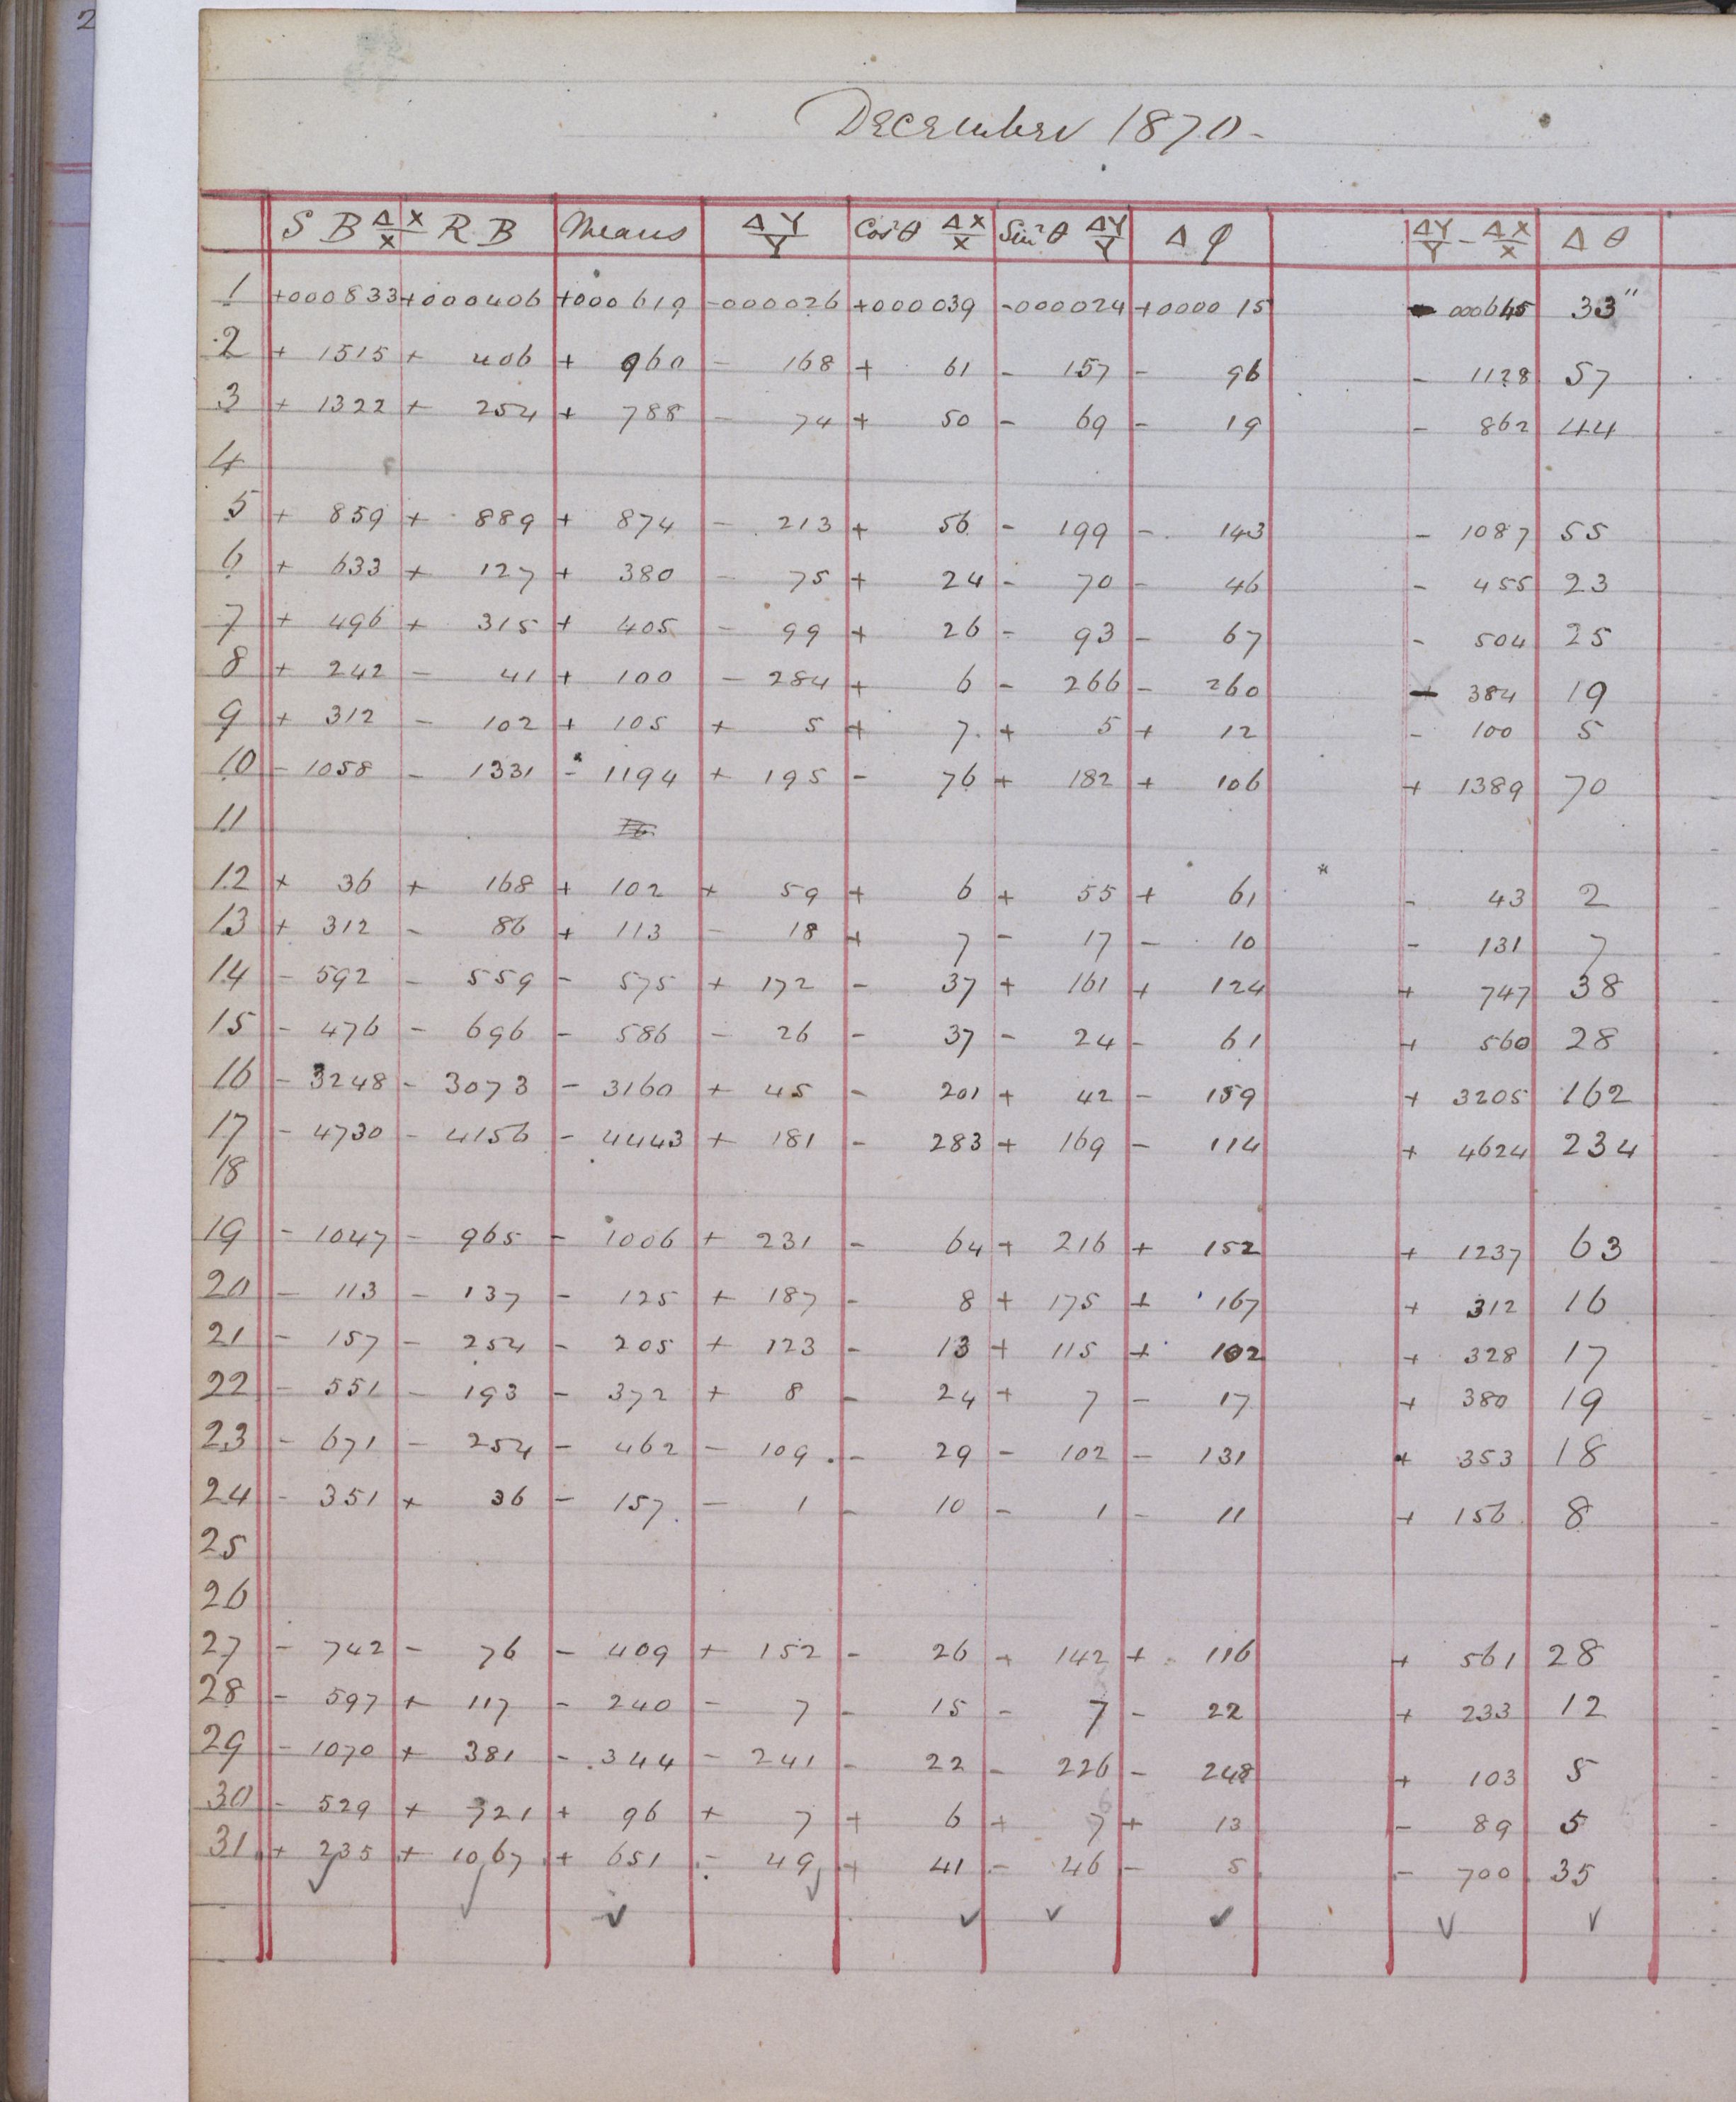 2
December 1870-
S B ΔX/X R B Means ΔY/Y Cos²θ ΔX/X Sin²θ ΔY/Y Δ φ ΔY/Y - ΔX/X Δ θ
1 +000833 +000406 +000619 -000026 +000039 -000024 +000015 - 000645 33"
2 + 1515 + 406 + 960 - 168 + 61 - 157 - 96 - 1128 57
3 + 1322 + 254 + 788 - 74 + 50 - 69 - 19 - 862 44
4
5 + 859 + 889 + 874 - 213 + 56 - 199 - 143 - 1087 55
6 + 633 + 127 + 380 - 75 + 24 - 70 - 46 - 455 23
7 + 496 + 315 + 405 - 99 + 26 - 93 - 67 - 504 25
8 + 242 - 41 + 100 - 284 + 6 - 266 - 260 - 384 19
9 + 312 - 102 + 105 + 5 + 7 + 5 + 12 - 100 5
10 - 1058 - 1331 - 1194 + 195 - 76 + 182 + 106 + 1389 70
11
12 + 36 + 168 + 102 + 59 + 6 + 55 + 61 * - 43 2
13 + 312 - 86 + 113 - 18 + 7 - 17 - 10 - 131 7
14 - 592 - 559 - 575 + 172 - 37 + 161 + 124 + 747 38
15 - 476 - 696 - 586 - 26 - 37 - 24 - 61 + 560 28
16 - 3248 - 3073 - 3160 + 45 - 201 + 42 - 159 + 3205 162
17 - 4730 - 4156 - 4443 + 181 - 283 + 169 - 114 + 4624 234
18
19 - 1047 - 965 - 1006 + 231 - 64 + 216 + 152 + 1237 63
20 - 113 - 137 - 125 + 187 - 8 + 175 + 167 + 312 16
21 - 157 - 254 - 205 + 123 - 13 + 115 + 102 + 328 17
22 - 551 - 193 - 372 + 8 - 24 + 7 - 17 + 380 19
23 - 671 - 254 - 462 - 109 - 29 - 102 - 131 + 353 18
24 - 351 + 36 - 157 - 1 - 10 - 1 - 11 + 156 8
25
26
27 - 742 - 76 - 409 + 152 - 26 + 142 + 116 + 561 28
28 - 597 + 117 - 240 - 7 - 15 - 7 - 22 + 233 12
29 - 1070 + 381 - 344 - 241 - 22 - 226 - 248 + 103 5
30 - 529 + 721 + 96 + 7 + 6 + 7 + 13 - 89 5
31 + 235 + 1067 + 651 - 49 + 41 - 46 - 5 - 700 35
✓ ✓ ✓ ✓ ✓ ✓ ✓ ✓ ✓